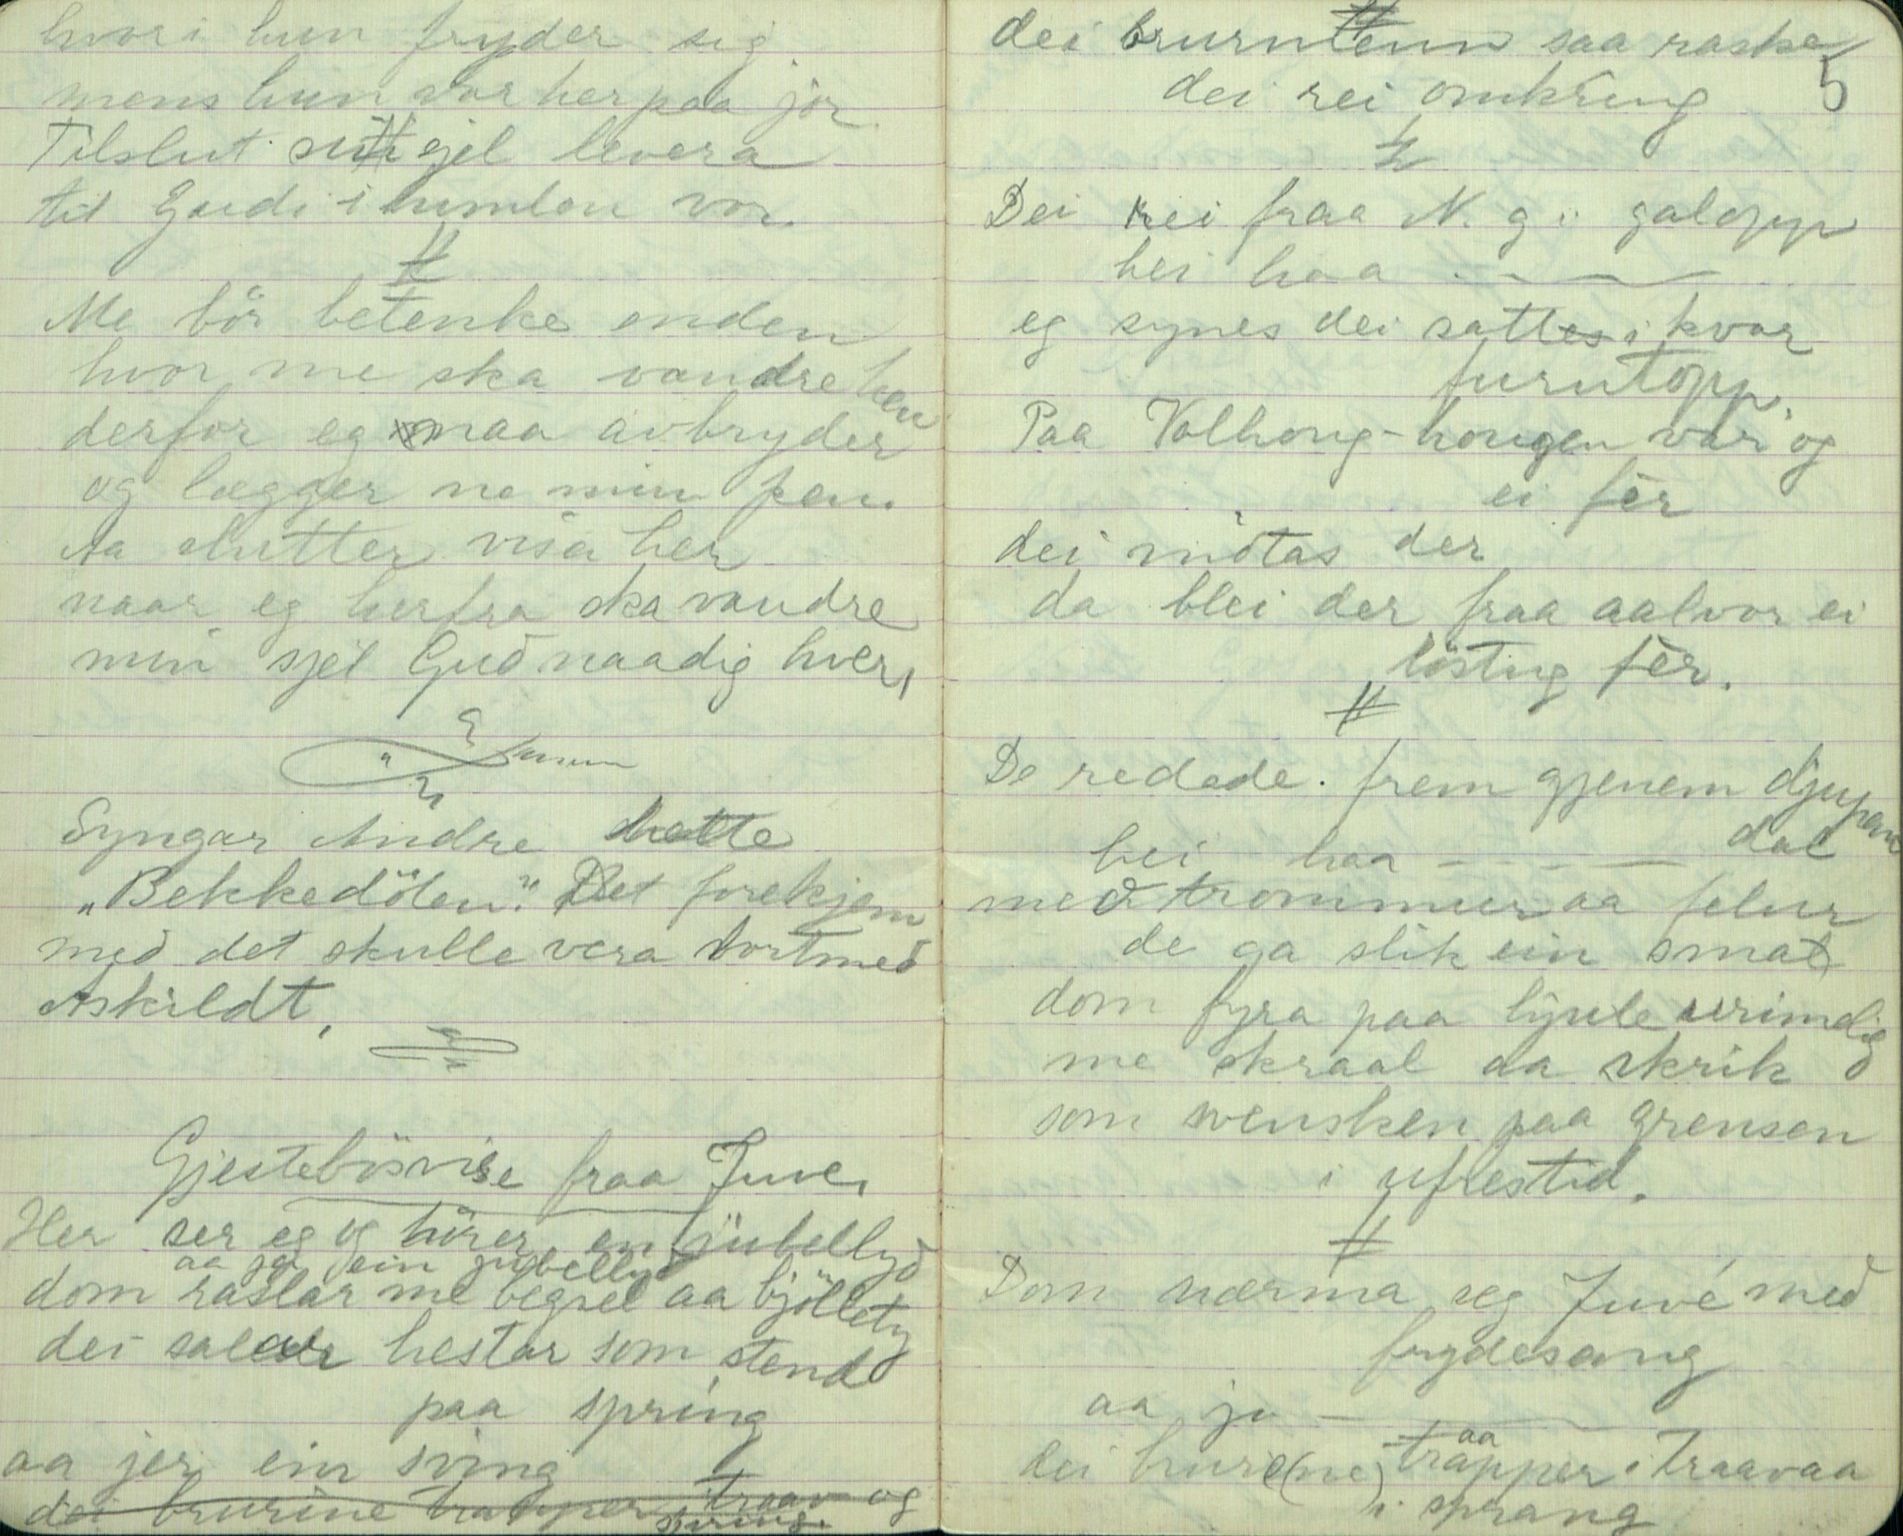 hvori hun fryder sig
mens hun var her paa jor
Tilslut sin sjel levera
til Gud i himlen vor.
#
Me bör betenke enden
hvor me ska vandre hen
derfor eg maa avbryder
og lægger ne min pen.
Aa slutter visa her
naar eg herfra ska vandre
min sjel Gud naadig hver,
Syngar Andre hette
„Bekkedölen". Det forekjem
med det skulle vera bortmed
Askildt,
Gjestebösvise fraa Juve,
Her ser eg og hörer en jubellyd
aa jei ein jubellyd
dom raslar me begsel aa bjöllety
dei salar hestar som stend
paa spring
aa jer ein sving
dei brurine trapper i traav og
spring.
dei brurmenn saa raske
5
dei rei omkring
#
Dei rei fraa N. g i galopp
hei haa - - -
eg synes dei sattes i kvar
furutopp.
Paa Volhoug-hougen var og
ei fèr
dei mötas der
da blei der fraa aalvor ei
löstug fèr.
#
De redede frem gjenem djupen
dal
hei haa - - - -
med trommur aa felur
de ga slik ein smal
dom fyra paa hjule urimelig
me skraal aa skrik
som svensken paa grensen
i ufrestid.
#
Dom nærma seg Juvé med
frydesang
aa ju - - -
aa
dei brure(ne) trapper i traav aa
i sprang